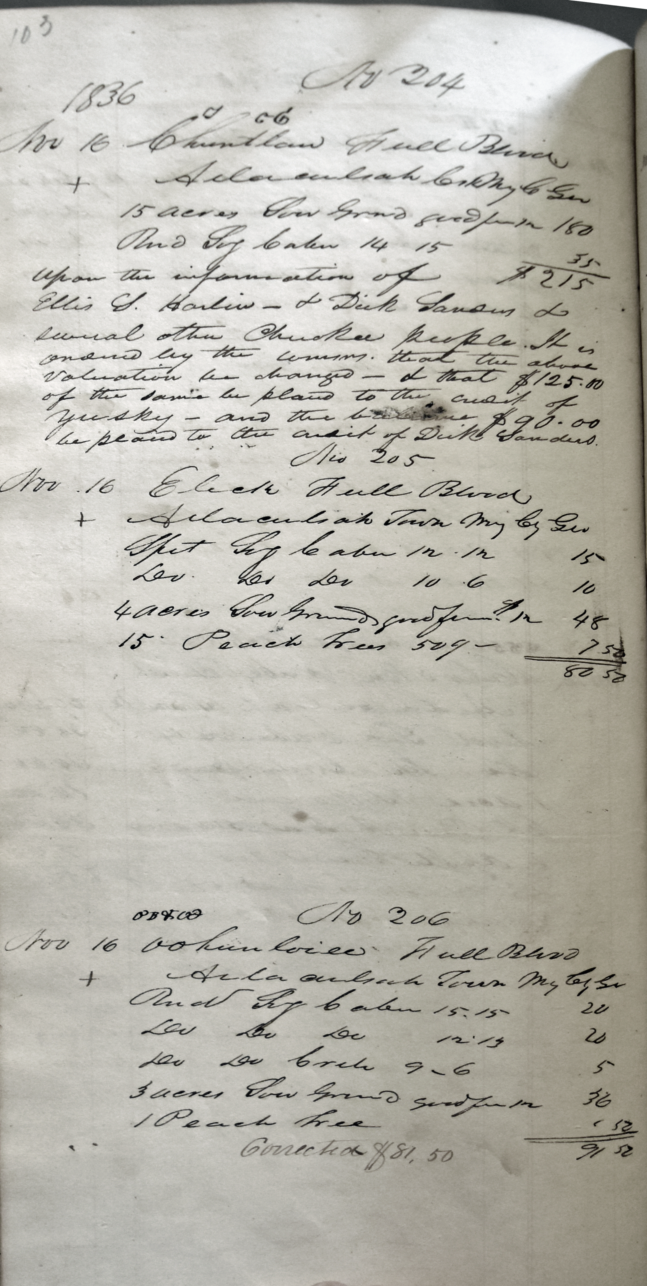 103
No 204
1836
Nov 16 Full Blood
+ Ailaculsah Crk My Co Geo
15 acres Low Grnd good fen 12 180
Rnd Log Caben 14 15 35
$215
upon the information of
Ellis S. Harlin – & Dick Sanders &
several other Cherokee people. It is
ordered by the comms. that the above
valuation be changed – & that $125.00
of the same be placed to the credit of
Yu,sky – and the ballance $90.00
be placed to the credit of Dick Sanders.
No 205
Nov 16 Eleck Full Blood
+ Ailaculsah Town My Cy Geo
Split Log Caben 12.12 15
Do Do Do 10 6 10
4 acres Low Ground, good fen. $12 48
15 Peach Trees 50¢ – 7 50
80 50
No 206
Nov 16 Full Blood
+ Ailaculsah Town My Cy Geo
Rnd Log Caben 15.15 20
Do Do Do 12.13 20
Do Do Crib 9–6 5
3 acres Low Grnd good fen 12 36
1 Peach Tree 50
91 50
Corrected $81.50